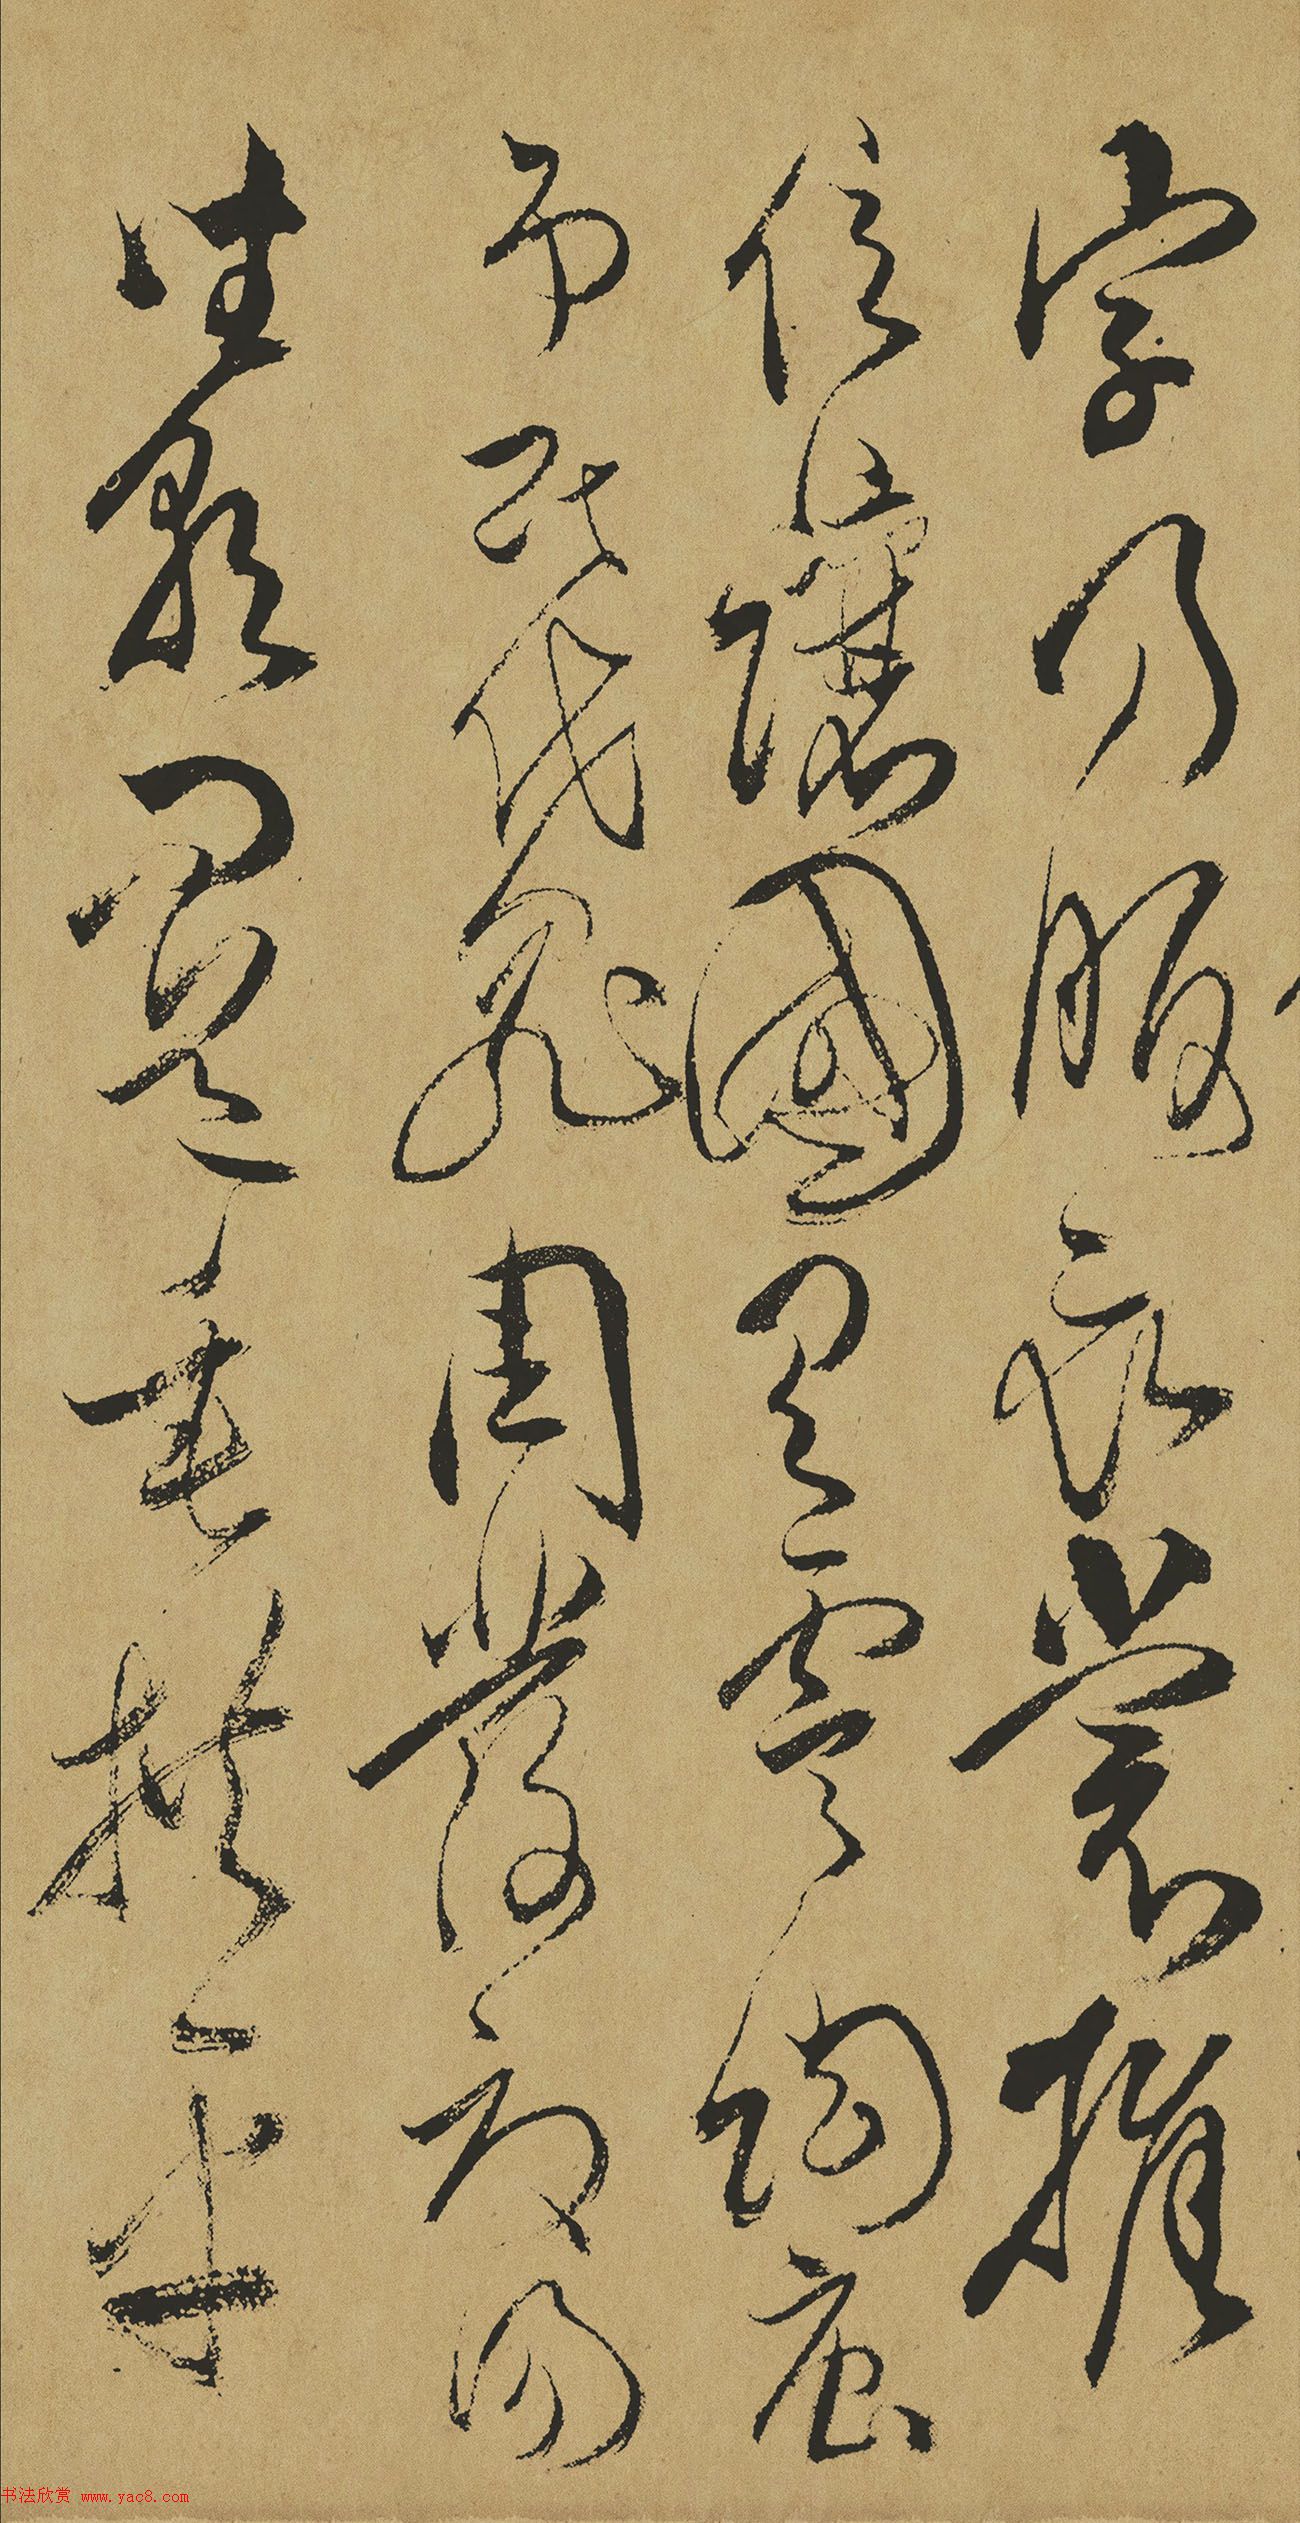 字乃服衣裳推
位讓國有虞陶唐
弔民伐罪周發商湯
坐朝問道垂拱平
书法欣赏 www.yac8.com